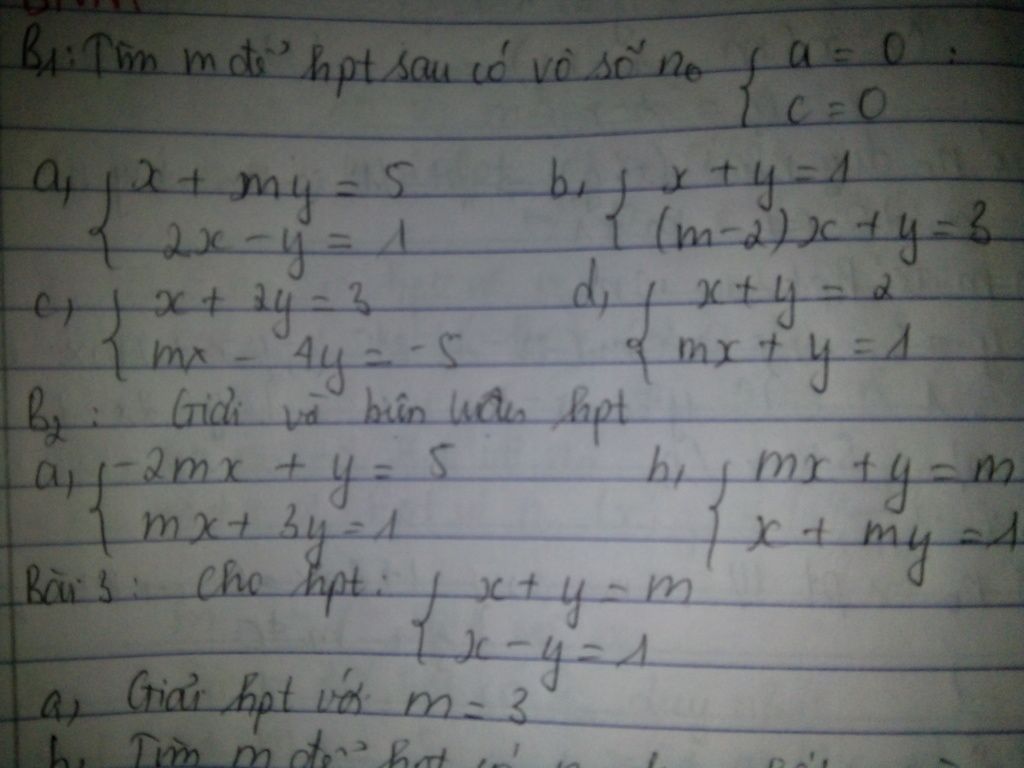 B1: Tìm m để hpt sau có vô số no { a = 0 :
c = 0
a, { x + my = 5 b, { x + y = 1
2x - y = 1 (m-2)x + y = 3
c, { x + 2y = 3 d, { x + y = 2
mx - 4y = -5 mx + y = 1
B2: Giải và biện luận hpt
a, { -2mx + y = 5 b, { mx + y = m
mx + 3y = 1 x + my = 1
Bài 3: Cho hpt: { x + y = m
x - y = 1
a, Giải hpt với m = 3
b, Tìm m để hpt có